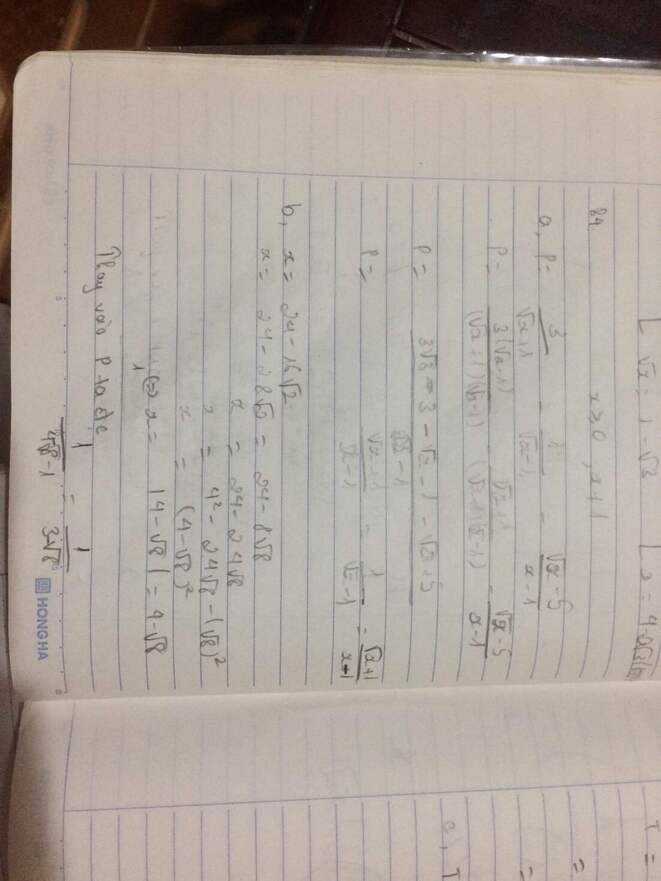 √x = 1 - √3
B4. x ≥ 0, x ≠ 1
a, P = 3/(√x+1) - 1/(√x-1) - (√x-5)/(x-1)
P = 3(√x-1)/((√x+1)(√x-1)) - (√x+1)/((√x+1)(√x-1)) - (√x-5)/(x-1)
P = (3√x - 3 - √x - 1 - √x + 5)/(x-1)
P = (√x+1)/(x-1) = 1/(√x-1) = (√x+1)/(x-1)
b, x = 24 - 16√2
x = 24 - 2 8√2 = 24 - 8√8
x = 24 - 24√8
x = 4² - 24√8 - (√8)²
x = (4-√8)²
(=) x = |4-√8| = 4-√8
Thay vào P ta đc
1/(4√8-1) = 1/(3√8)
HONGHA